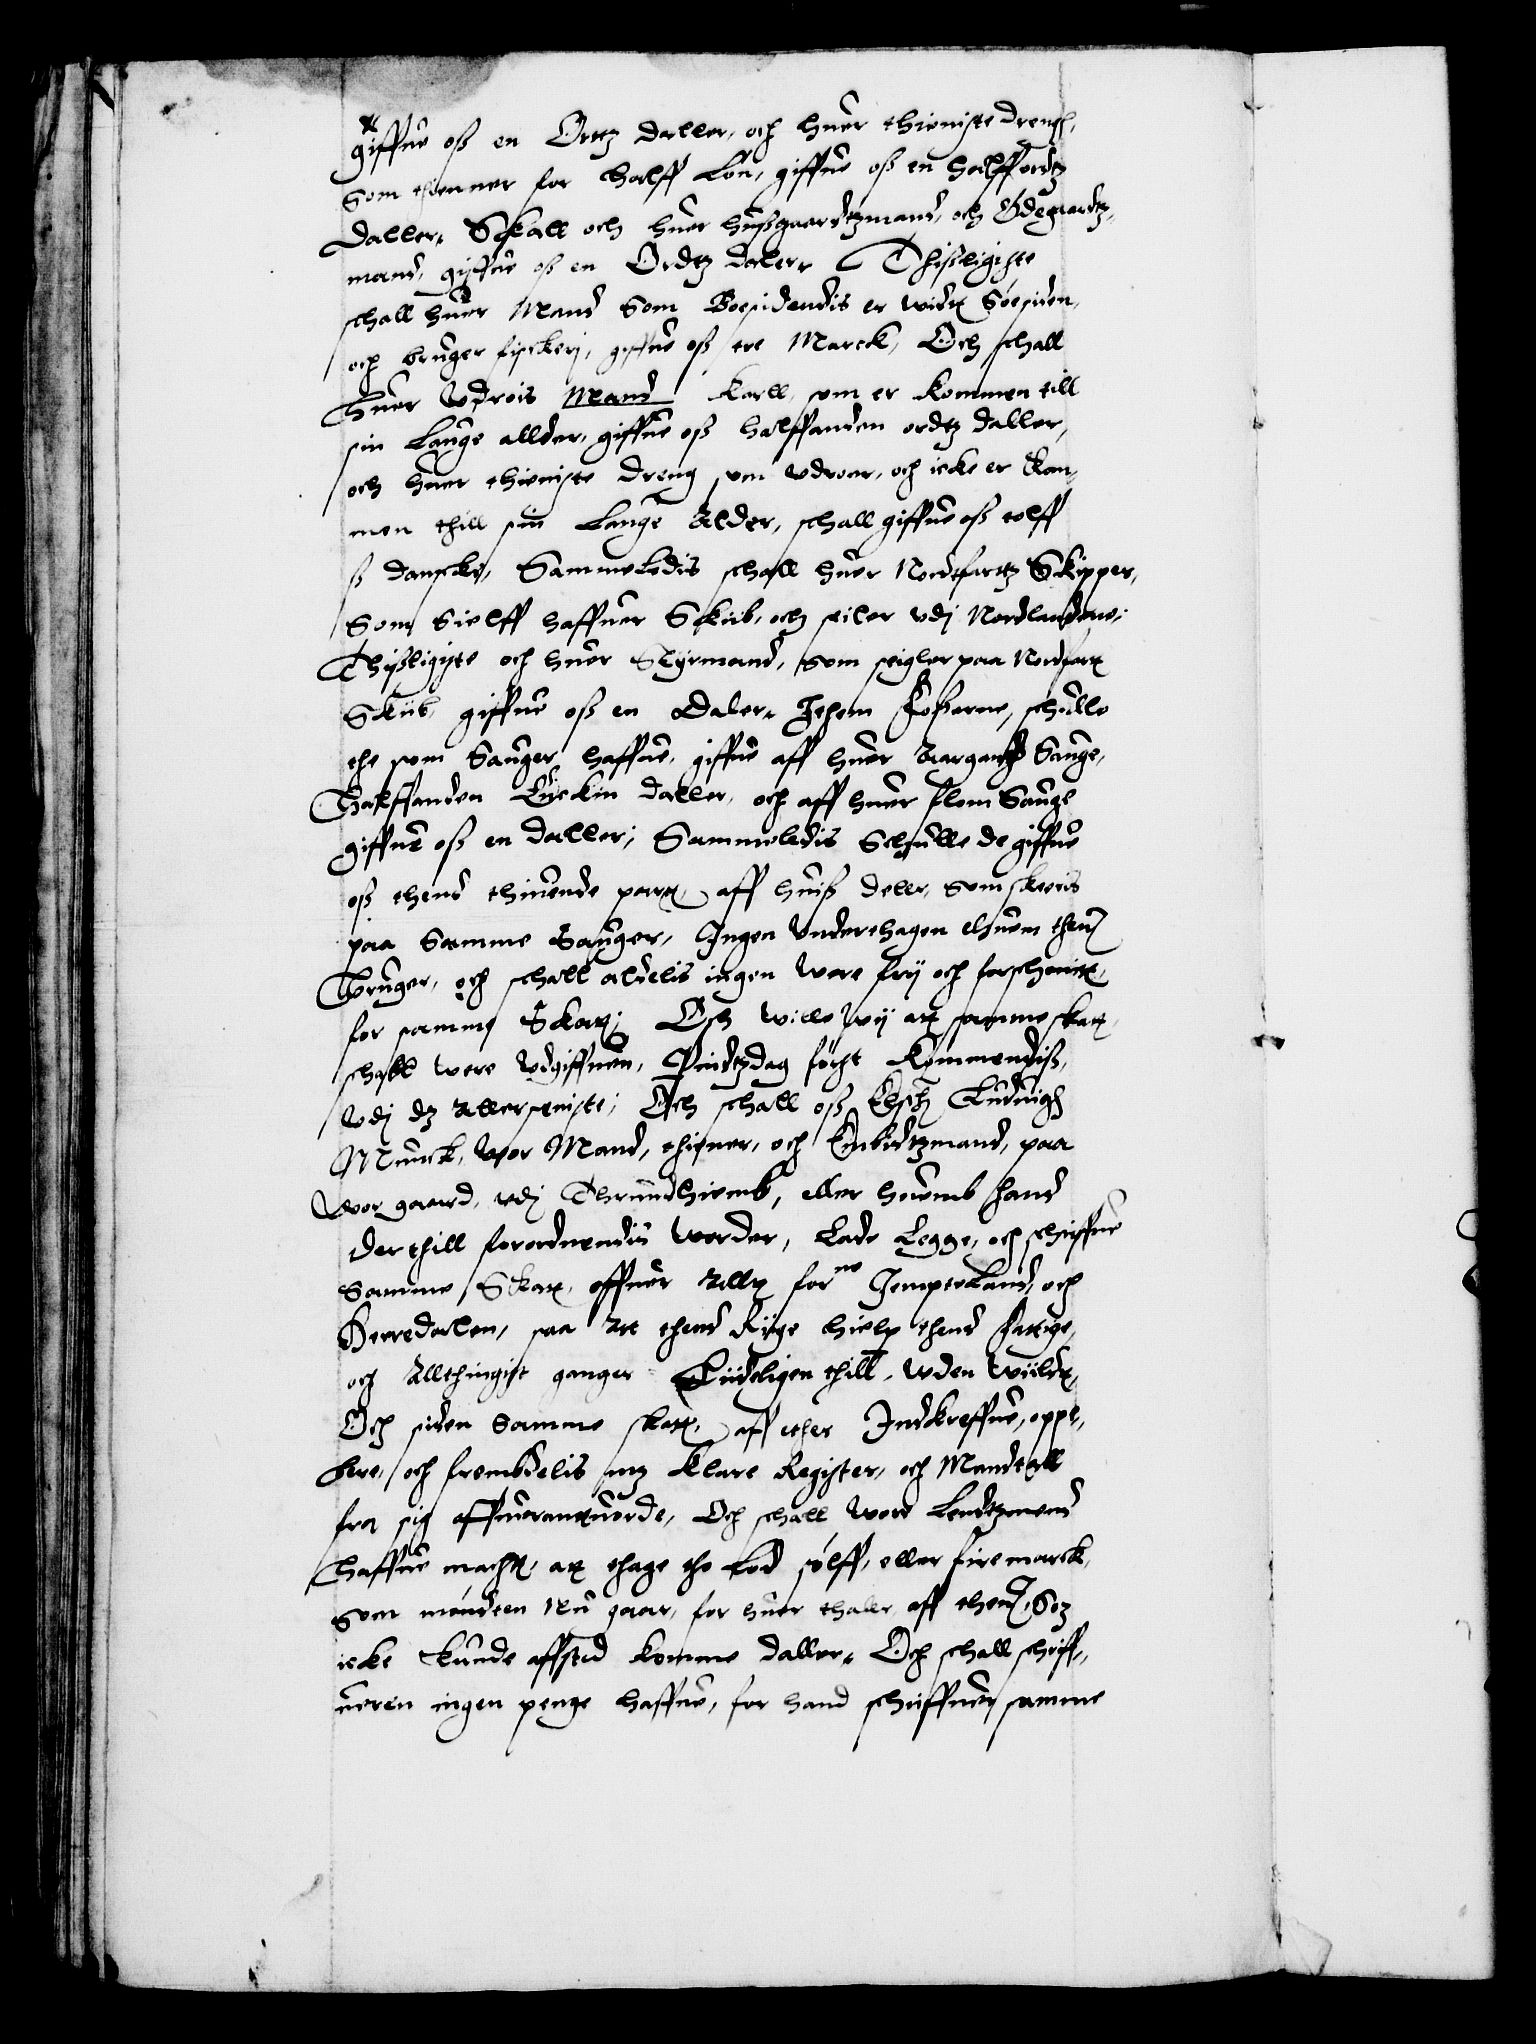 giffue oß en Ortz daller, och huer thieniste dreng,
Som thienner for halff Løn, giffue oß en halff ordtz
daller, Skall och huer hußgaardtzmand, och Ødegaardtz-
mand, giffue oß en Ordtz daler, Thißligiste
schall huer Mand Som Boesidendis er widt Søesiden,
och bruger fisckerj, giffue oß tre Marck, Och schall
huer Vdrois Mand Karll, som er kommen till
sin Lauge allder, giffue oß halffanden ordtz daller,
och huer thieniste dreng som vdroer, och icke er kom-
men thill sin Lauge Alder, schall giffue oß tolff
ß danscke, Sammeledis schall huer Nordfartz Skipper,
Som Sielff haffuer Skiib, och seiler vdj Nordlandene,
Thißligiste och huer Styrmand, som seigler paa Nordfar
Skiib, giffue oß en Daler, Jthem Foßerne, schulle
the som Sauger haffue, giffue aff huer Aargangs Sauge,
Halffanden Lückin daller, och aff huer flom Sauge
giffue oß en daller, Sammeledis Schulle de giffue
oß thend thiuende part, aff huiß deller, som skeeris
paa Samme Sauger, Ingen Vnderthagen ehuem them
bruger, och schall aldelis ingen were frij och forschonit,
for samme Skatt, Och wille wij att samme skatt,
schall were vdgiffuen, Pindtzdag først Kommendiß,
Vdj dz allerseniste, Och schall oß Elsk: Ludwig
Munck, wor Mand, thiener, och Embidtzmand, paa
wor gaard, vdj Thrundhiemb, eller huemb hand
der thill forordnendis worder, Lade Legge, och schriffue
Samme Skatt, offuer Allt for<sup>ne</sup> Jempteland, och
Herredallen, saa att thend Rige hielp thend fattige,
och Allthingist ganger Liideligen thill, vden wiildt,
Och siden Samme skatt, aff ther Indkreffue, oppe-
bere, och frembdelis mz Klare Register, och Mandtall
fra sig offuerantuorde, Och schall wore Lendtzmend
haffue macht, att thage tho Lod sølff, eller fire marck,
Som mønten nu gaar, for huer thaller, aff them, Som
icke kunde affsted komme daller, Och schall schriff-
ueren ingen penge haffue, for hand schriffuer samme